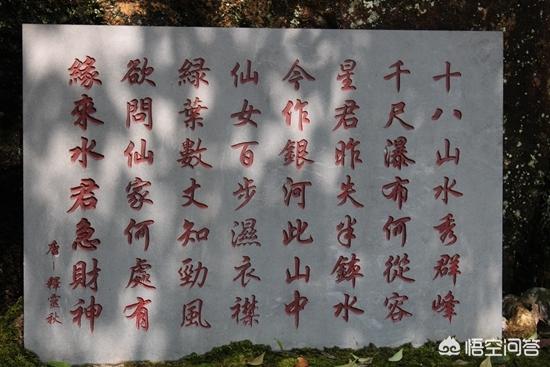 十八山水秀群峰
千尺瀑布何從容
星君昨失半鉢水
今作銀河此山中
仙女百步濕衣襟
綠葉數丈知勁風
欲問仙家何處有
緣來水君急財神
唐—釋靈秋
悟空问答